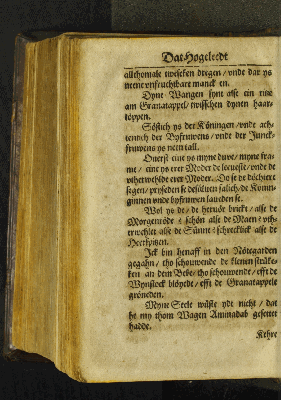 Dat Hogeleedt
allthomale twelcken dregen / vnde dar ys
nene vnfruchtbar manck en.
Dyne Wangen synt alse ein ritze
am Granatappel / twisschen dynen haar-
töppen.
Söstich ys der Köningen / vnde ach-
tentich der Byfruwens / vnde der Junck-
fruwens ys neen tall.
Ouerst eine ys myne duve / myne fra-
me / eine ys erer Moder de leueste / vnde de
vtherwelde erer Moder. Do se de döchtere
segen / pryseden se desüluen salich / de Konin-
ginnen vnde byfruwen laueden se.
Wol ys de / de hervör brickt / alse de
Morgenröde / schön alse de Maen / vth-
erwelet alse de Sünne / schrecklick alse de
Heerspitzen.
Ick bin henaff in den Nötegarden
gegahn / tho schouwende de klenen strüke-
ken an dem Beke / tho schouwende / efft de
Wynstock blöyede / efft de Granatappele
gröneden.
Myne Seele wüste ydt nicht / dat
he my thom Wagen Aminadab gesettet
hadde.
Kehre